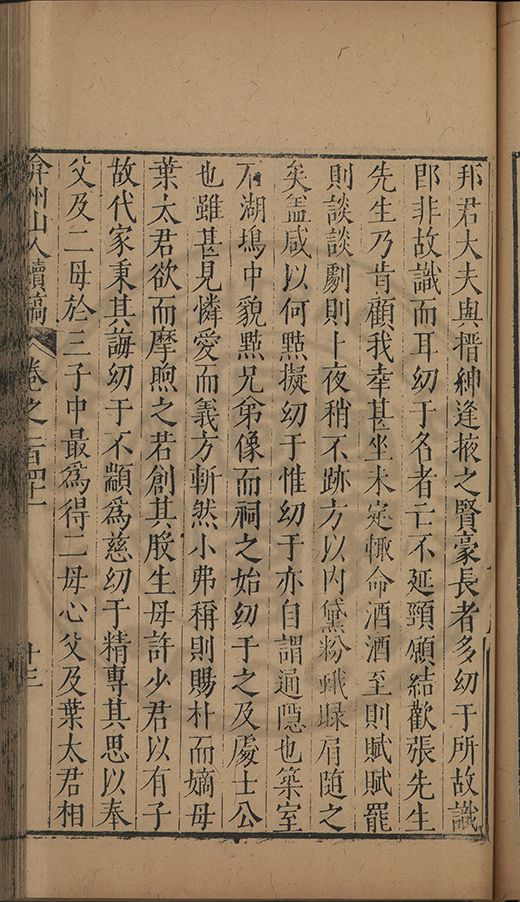 邦君大夫與搢紳逢掖之賢豪長者多幼于所故識
卽非故識而耳幼于名者亡不延頸願結歡張先生
先生乃肯顧我幸甚坐未定輙命酒酒至則賦賦罷
則談談劇則卜夜稍不跡方以內黛粉蛾眉肩随之
矣盖咸以何㸃擬幼于惟幼于亦自謂通隱也築室
石湖塢中貌㸃兄弟像而祠之始幼于之及處士公
也雖甚見憐愛而義方斬然小弗稱則賜朴而嫡母
葉太君欲而摩煦之若創其股生母許少君以有子
故代家秉其誨幼于不顓爲慈幼于精專其思以奉
父及二母於三子中最爲得二母心父及葉太君相
弇州山人續稿 卷之一百四十一 十三